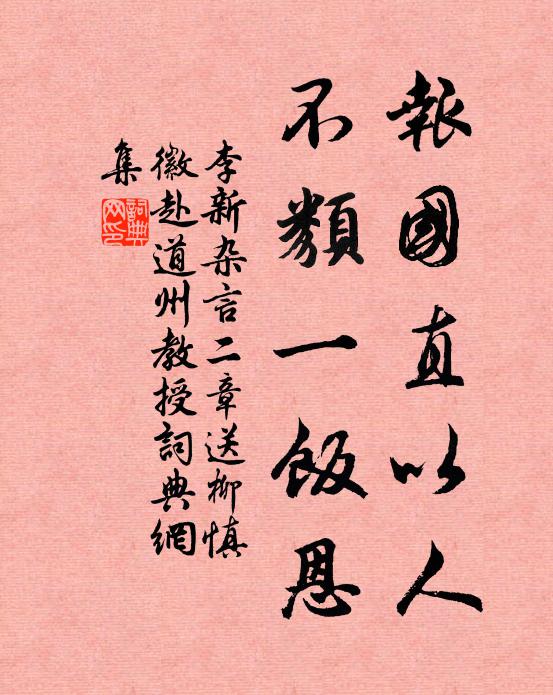 報國直以人
不類一飯恩
李新杂言二章送柳慎
徽赴道州教授詞典網
集
詞典網印